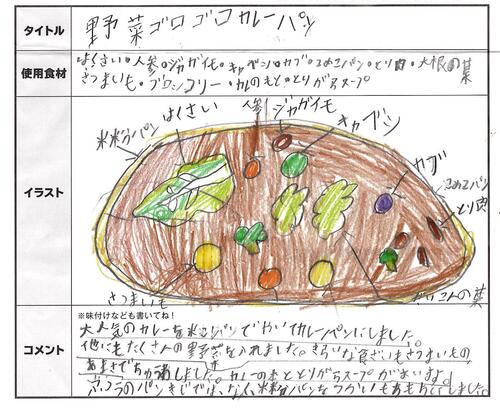 タイトル
野菜ゴロゴロカレーパン
使用食材
はくさい・人参・ジャガイモ・キャベツ・カブ・こめこパン・とり肉・大根の葉
さつまいも・ブロッコリー・カレーのもと・とりがらスープ
イラスト
はくさい
人参
ジャガイモ
キャベツ
米粉パン
カブ
こめこパン
とり肉
さつまいも
だいこんの葉
コメント
※味付けなども書いてね!
大人気のカレーを米こパンでやいてカレーパンにしました。
他にもたくさんの野菜を入れました。きらいな食ざいもさつまいもの
あまさでちゅう和しました。カレーの本ととりがらスープがあいますよ。
ふつうのパンきじではなく、米粉パンをつかいもちもちにしました。